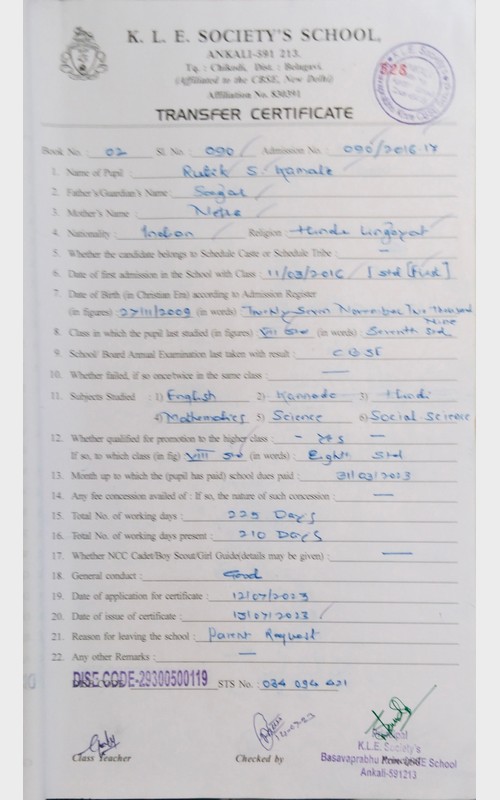 K. L. E. SOCIETY'S SCHOOL,
ANKALI-591 213.
Tq. : Chikodi, Dist. : Belagavi.
(Affiliated to the CBSE, New Delhi)
Affiliation No. 830391
K.L.E. Society's
828
TRANSFER CERTIFICATE
Book No. 02 Sl. No. 090 Admission No. 090/2016-17
1. Name of Pupil Rutik S. Kamate
2. Father's/Guardian's Name : Sagar
3. Mother's Name : Neha
4. Nationality : Indian Religion : Hindu Lingayat
5. Whether the candidate belongs to Schedule Caste or Schedule Tribe : —
6. Date of first admission in the School with Class : 11/03/2016 I std [First]
7. Date of Birth (in Christian Era) according to Admission Register
(in figures) 27/11/2009 (in words) Twenty Seven November Two Thousand Nine
8. Class in which the pupil last studied (in figures) VII Std (in words) : Seventh Std
9. School/ Board Annual Examination last taken with result : CBSE
10. Whether failed, if so once/twice in the same class : —
11. Subjects Studied : 1) English 2) Kannada 3) Hindi
4) Mathematics 5) Science 6) Social Science
12. Whether qualified for promotion to the higher class : - Yes —
If so, to which class (in fig) VIII Std (in words) : Eighth Std
13. Month up to which the (pupil has paid) school dues paid : 31/03/2023
14. Any fee concession availed of : If so, the nature of such concession : —
15. Total No. of working days : 225 Days
16. Total No. of working days present : 210 Days
17. Whether NCC Cadet/Boy Scout/Girl Guide(details may be given) : —
18. General conduct : Good
19. Date of application for certificate : 12/07/2023
20. Date of issue of certificate : 13/07/2023
21. Reason for leaving the school : Parent Request
22. Any other Remarks : —
DISE CODE-29300500119 STS No. : 034 094 421
Class Teacher Checked by Principal
K.L.E. Society's
Basavaprabhu Kore CBSE School
Ankali-591213